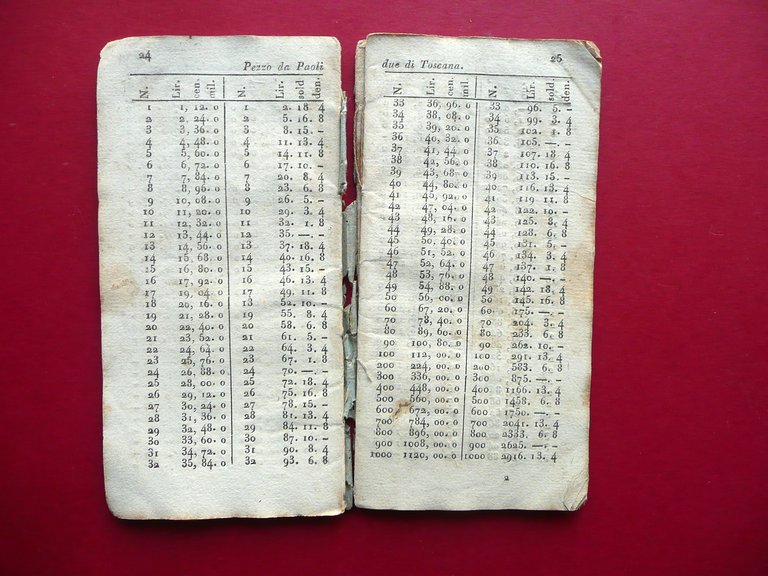 24
Pezzo da Paoli
N. Lir. cen. mil. N. Lir. sold. den.
1 1, 12. 0 1 2. 18. 4
2 2, 24. 0 2 5. 16. 8
3 3, 36. 0 3 8. 15. -
4 4, 48. 0 4 11. 13. 4
5 5, 60. 0 5 14. 11. 8
6 6, 72. 0 6 17. 10. -
7 7, 84. 0 7 20. 8. 4
8 8, 96. 0 8 23. 6. 8
9 10, 08. 0 9 26. 5. -
10 11, 20. 0 10 29. 3. 4
11 12, 32. 0 11 32. 1. 8
12 13, 44. 0 12 35. —. -
13 14, 56. 0 13 37. 18. 4
14 15, 68. 0 14 40. 16. 8
15 16, 80. 0 15 43. 15. -
16 17, 92. 0 16 46. 13. 4
17 19, 04. 0 17 49. 11. 8
18 20, 16. 0 13 52. 10. -
19 21, 28. 0 19 55. 8. 4
20 22, 40. 0 20 58. 6. 8
21 23, 52. 0 21 61. 5. -
22 24, 64. 0 22 64. 3. 4
23 25, 76. 0 23 67. 1. 8
24 26, 88. 0 24 70. —. -
25 28, 00. 0 25 72. 18. 4
26 29, 12. 0 26 75. 16. 8
27 30, 24. 0 27 78. 15. -
28 31, 36. 0 28 81. 13. 4
29 32, 48. 0 29 84. 11. 8
30 33, 60. 0 30 87. 10. -
31 34, 72. 0 31 90. 8. 4
32 35, 84. 0 32 93. 6. 8
due di Toscana.
25
N. Lir. cen. mil. N. Lir. sold. den.
33 36, 96. 0 33 96. 5. -
34 38, 08. 0 34 99. 3. 4
35 39, 20. 0 35 102. 1. 8
36 40, 32. 0 36 105. —. -
37 41, 44. 0 37 107. 18. 4
38 42, 56. 0 38 110. 16. 8
39 43, 68. 0 39 113. 15. -
40 44, 80. 0 40 116. 13. 4
41 45, 92. 0 41 119. 11. 8
42 47, 04. 0 42 122. 10. -
43 48, 16. 0 43 125. 8. 4
44 49, 28. 0 44 128. 6. 8
45 50, 40. 0 45 131. 5. -
46 51, 52. 0 46 134. 3. 4
47 52, 64. 0 47 137. 1. 8
48 53, 76. 0 48 140. —. -
49 54, 88. 0 49 142. 18. 4
50 56, 00. 0 50 145. 16. 8
60 67, 20. 0 60 175. —. -
70 78, 40. 0 70 204. 3. 4
80 89, 60. 0 80 233. 6. 8
90 100, 80. 0 90 262. 10. -
100 112, 00. 0 100 291. 13. 4
200 224, 00. 0 200 583. 6. 8
300 336, 00. 0 300 875. —. -
400 448, 00. 0 400 1166. 13. 4
500 560, 00. 0 500 1458. 6. 8
600 672, 00. 0 600 1750. —. -
700 784, 00. 0 700 2041. 13. 4
800 896, 00. 0 800 2333. 6. 8
900 1008, 00. 0 900 2625. —. -
1000 1120, 00. 0 1000 2916. 13. 4
2